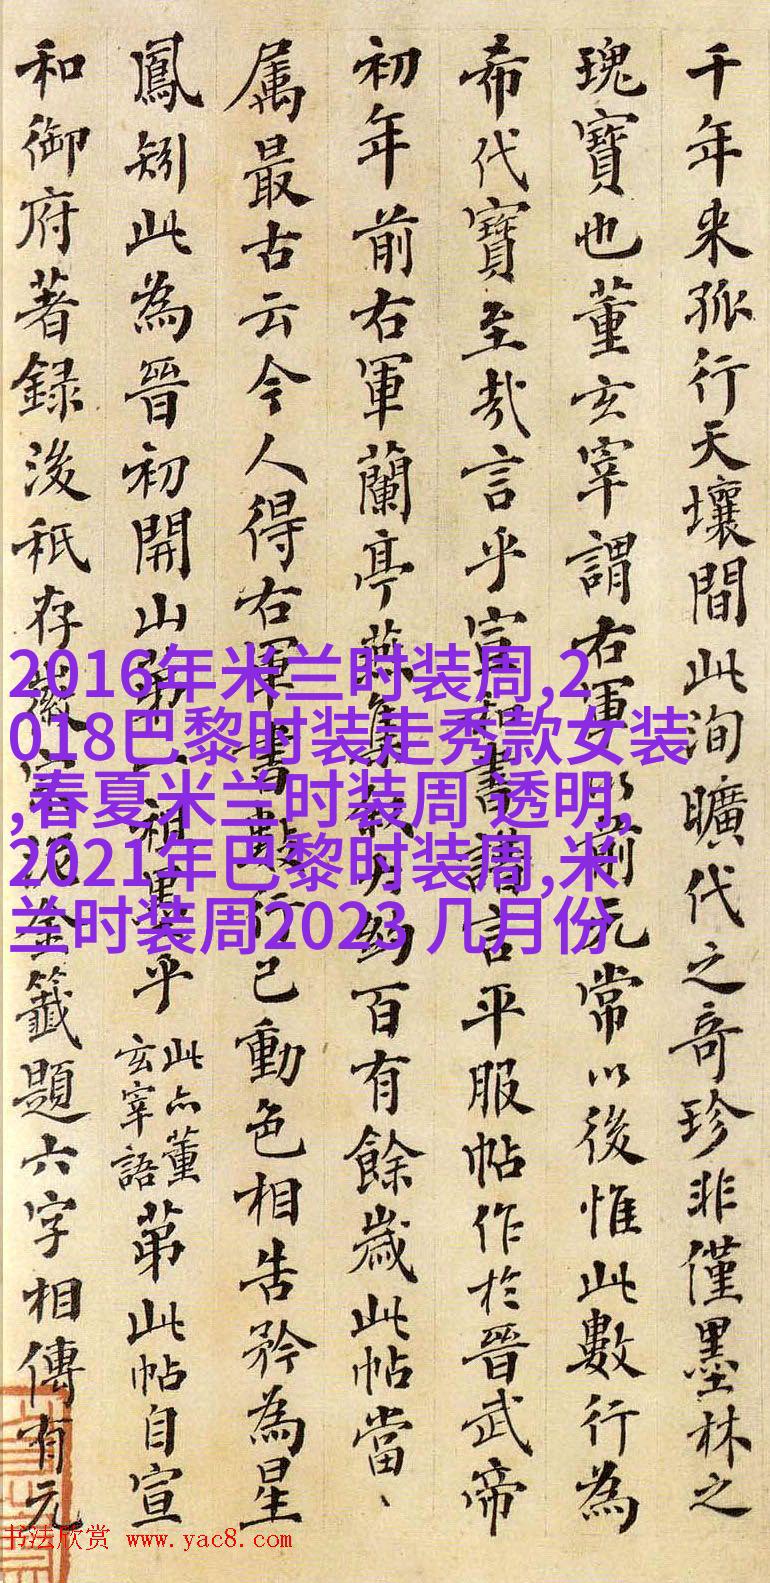 千年来孤行天壤間此洵曠代之奇珍非僅墨林之
瑰寶也董玄宰謂右軍以前元常以後惟此數行為
希代寶至哉言乎宣和書譜言平服帖作於晉武帝
初年前右軍蘭亭燕集叙約百有餘歲此帖當、
属最古云今人得右軍書數行已動色相告矜為星
鳳矧此為晉初開山第一祖墨乎此亦董玄宰語第此帖自宣
和御府著録後秖存徽宗泥金籤題六字相傳有元
2016年米兰时装周,2
018巴黎时装走秀款女装
,春夏米兰时装周 透明,
2021年巴黎时装周,米
兰时装周2023 几月份
书法欣赏 www.yac8.com